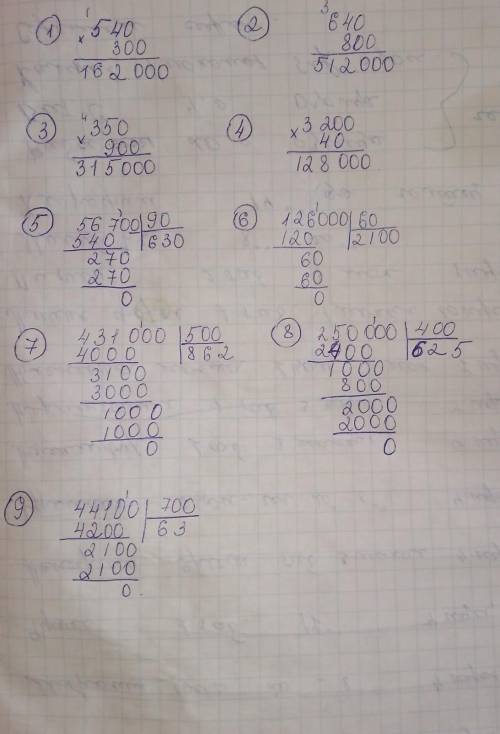 ① 1
×540
300
162.000
② 3
640
800
512000
③ 4
×350
900
315000
④ ×3200
40
128000
⑤ 56700 | 90
540 | 630
270
270
0
⑥ 126000 | 60
120 | 2100
60
60
0
⑦ 431000 | 500
4000 | 862
3100
3000
1000
1000
0
⑧ 250000 | 400
2400 | 625
1000
800
2000
2000
0
⑨ 44100 | 700
4200 | 63
2100
2100
0.